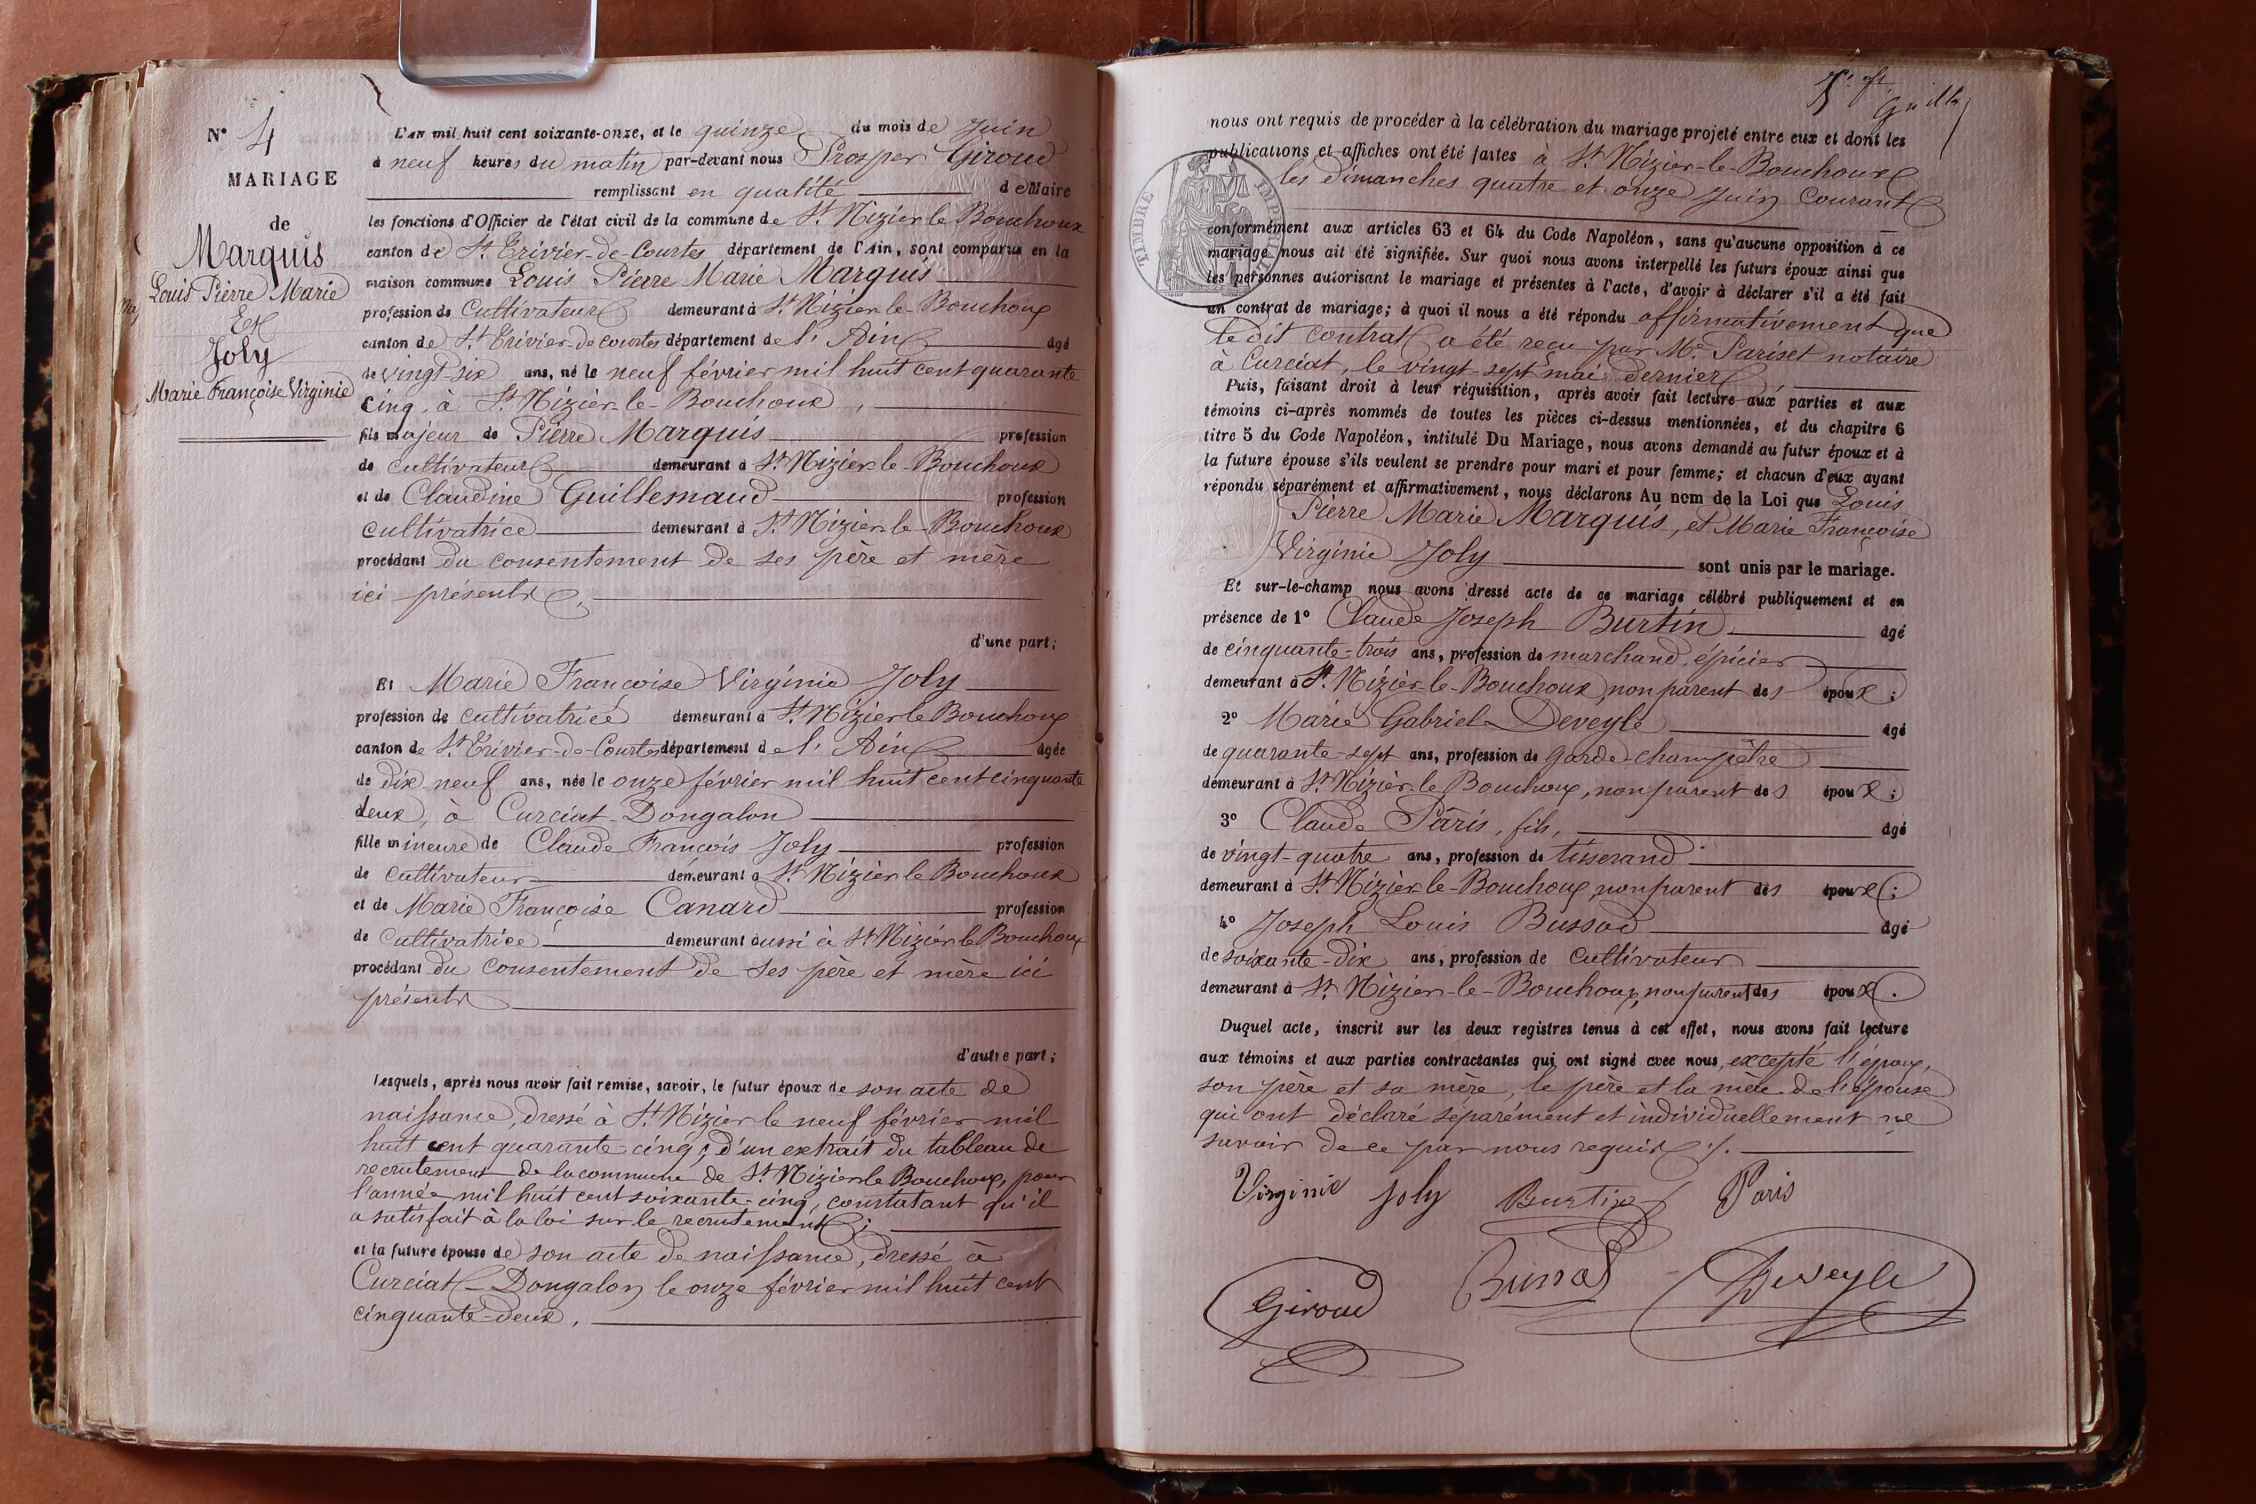 N° 4
MARIAGE
de
Marquis
Louis Pierre Marie
Et
Joly
Marie Françoise Virginie
L'an mil huit cent soixante-onze, et le quinze du mois de Juin
à neuf heures du matin par-devant nous Prosper Giroud
remplissant en qualité de Maire
les fonctions d'Officier de l'état civil de la commune de St Nizier le Bouchoux
canton de St Trivier-de-Courtes département de l'Ain, sont comparus en la
maison commune Louis Pierre Marie Marquis
profession de Cultivateur demeurant à St Nizier-le-Bouchoux
canton de St Trivier-de-Courtes département de l'Ain âgé
de vingt-six ans, né le neuf février mil huit cent quarante
cinq, à St Nizier-le-Bouchoux,
fils majeur de Pierre Marquis profession
de cultivateur demeurant à St Nizier-le-Bouchoux
et de Claudine Guillemaud profession
cultivatrice demeurant à St Nizier-le-Bouchoux
procédant du consentement de ses père et mère
ici présents,
d'une part;
Et Marie Françoise Virginie Joly
profession de cultivatrice demeurant à St Nizier le Bouchoux
canton de St Trivier-de-Courtes département de l'Ain âgée
de dix neuf ans, née le onze février mil huit cent cinquante
deux, à Curciat-Dongalon
fille mineure de Claude François Joly profession
de cultivateur demeurant à St Nizier le Bouchoux
et de Marie Françoise Canard profession
de cultivatrice demeurant aussi à St Nizier le Bouchoux
procédant du consentement de ses père et mère ici
présents
d'autre part;
Lesquels, après nous avoir fait remise, savoir, le futur époux de son acte de
naissance, dressé à St Nizier le neuf février mil
huit cent quarante cinq; d'un extrait du tableau de
recrutement de la commune de St Nizier le Bouchoux, pour
l'année mil huit cent soixante-cinq, constatant qu'il
a satisfait à la loi sur le recrutement;
et la future épouse de son acte de naissance, dressé à
Curciat-Dongalon le onze février mil huit cent
cinquante-deux,
nous ont requis de procéder à la célébration du mariage projeté entre eux et dont les
publications et affiches ont été faites à St Nizier-le-Bouchoux
les dimanches quatre et onze Juin courant
TIMBRE IMPÉRIAL
conformément aux articles 63 et 64 du Code Napoléon, sans qu'aucune opposition à ce
mariage nous ait été signifiée. Sur quoi nous avons interpellé les futurs époux ainsi que
les personnes autorisant le mariage et présentes à l'acte, d'avoir à déclarer s'il a été fait
un contrat de mariage; à quoi il nous a été répondu affirmativement que
ledit contrat a été reçu par Me Pariset notaire
à Curciat, le vingt-sept mai dernier,
Puis, faisant droit à leur réquisition, après avoir fait lecture aux parties et aux
témoins ci-après nommés de toutes les pièces ci-dessus mentionnées, et du chapitre 6
titre 5 du Code Napoléon, intitulé Du Mariage, nous avons demandé au futur époux et à
la future épouse s'ils veulent se prendre pour mari et pour femme; et chacun d'eux ayant
répondu séparément et affirmativement, nous déclarons Au nom de la Loi que Louis
Pierre Marie Marquis, et Marie Françoise
Virginie Joly sont unis par le mariage.
Et sur-le-champ nous avons dressé acte de ce mariage célébré publiquement et en
présence de 1° Claude Joseph Burtin, âgé
de cinquante-trois ans, profession de marchand épicier
demeurant à St Nizier-le-Bouchoux, non parent des époux;
2° Marie Gabriel Deveyle âgé
de quarante-sept ans, profession de garde champêtre
demeurant à St Nizier-le-Bouchoux, non parent des époux;
3° Claude Pâris, fils, âgé
de vingt-quatre ans, profession de tisserand
demeurant à St Nizier-le-Bouchoux, non parent des époux;
4° Joseph Louis Bussod âgé
de soixante-dix ans, profession de cultivateur
demeurant à St Nizier-le-Bouchoux, non parent des époux.
Duquel acte, inscrit sur les deux registres tenus à cet effet, nous avons fait lecture
aux témoins et aux parties contractantes qui ont signé avec nous, excepté l'époux,
son père et sa mère, le père et la mère de l'épouse
qui ont déclaré séparément et individuellement ne
savoir de ce par nous requis ./.
Virginie Joly Burtin Paris
Giroud Bussod Deveyle